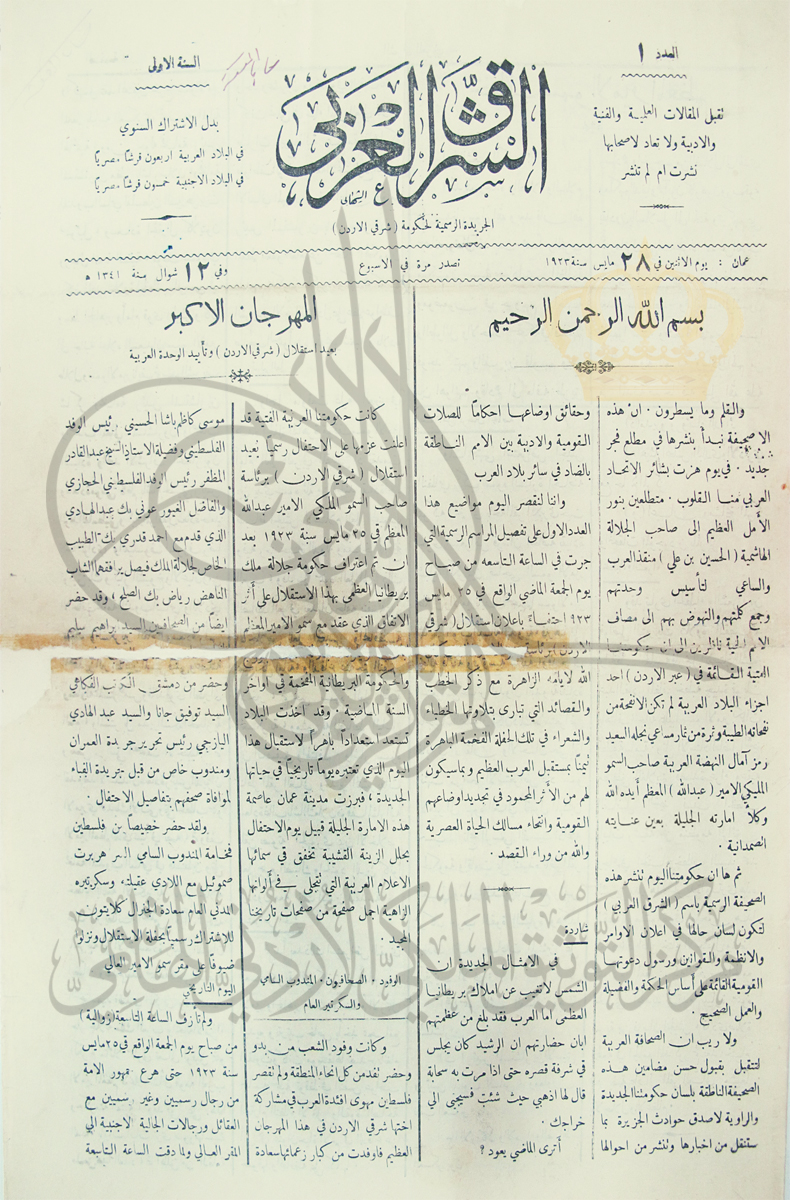 العدد ١
السنة الاولى
تقبل المقالات العلمية والفنية
والادبية ولا تعاد لاصحابها
نشرت ام لم تنشر
الشرق العربي
الجريدة الرسمية لحكومة ( شرقي الاردن )
بدل الاشتراك السنوي
في البلاد العربية اربعون قرشاً مصرياً
في البلاد الاجنبية خمسون قرشاً مصرياً
عمان : يوم الاثنين في ٢٨ مايس سنة ١٩٢٣
تصدر مرة في الاسبوع
وفي ١٢ شوال سنة ١٣٤١ ه
بسم الله الرحمن الرحيم
والقلم وما يسطرون . ان هذه
الصحيفة نبدأ بنشرها في مطلع فجر
جديد . في يوم هزت بشائر الاتحاد
العربي منا القلوب . متطلعين بنور
الأمل العظيم الى صاحب الجلالة
الهاشمية ( الحسين بن علي ) منقذ العرب
والساعي لتأسيس وحدتهم
وجمع كلمتهم والنهوض بهم الى مصاف
الامم الحية ناظرين الى ان حكومتنا
الفتية القائمة في ( عبر الاردن ) احد
اجزاء البلاد العربية لم تكن الا نفحة من
نفحاته الطيبة وثمرة من ثمار مساعي نجله السعيد
رمز آمال النهضة العربية صاحب السمو
الملكي الامير ( عبدالله ) المعظم أيده الله
وكلأ امارته الجليلة بعين عنايته
الصمدانية .
ثم ها ان حكومتنا اليوم تنشر هذه
الصحيفة الرسمية باسم ( الشرق العربي )
لتكون لسان حالها في اعلان الاوامر
والانظمة والقوانين ورسول دعوتها
القومية القائمة على أساس الحكمة والفضيلة
والعمل الصحيح .
ولا ريب ان الصحافة العربية
لتتقبل بقبول حسن مضامين هذه
الصحيفة الناطقة بلسان حكومتنا الجديدة
والراوية لاصدق حوادث الجزيرة بما
ستنقل من اخبارها وتنشر من احوالها
وحقائق اوضاعها احكاماً للصلات
القومية والادبية بين الامم الناطقة
بالضاد في سائر بلاد العرب
واننا لنقصر اليوم مواضيع هذا
العدد الاول على تفصيل المراسم الرسمية التي
جرت في الساعة التاسعه من صباح
يوم الجمعة الماضي الواقع في ٢٥ مايس
١٩٢٣ احتفاءً باعلان استقلال ( شرقي
الاردن
الله لايامه الزاهرة مع ذكر الخطب
والقصائد التي تبارى بتلاوتها الخطباء
والشعراء في تلك الحفلة الفخمة الباهرة
تيمناً بمستقبل العرب العظيم وبما سيكون
لهم من الأثر المحمود في تجديد اوضاعهم
القومية وانتحاء مسالك الحياة العصرية
والله من وراء القصد .
شاردة
في الامثال الجديدة ان
الشمس لا تغيب عن املاك بريطانيا
العظمى اما العرب فقد بلغ من عظمتهم
ابان حضارتهم ان الرشيد كان يجلس
في شرفة قصره حتى اذا مرت به سحابة
قال لها اذهبي حيث شئت فسيجبى الي
خراجك .
أترى الماضي يعود ؟
المهرجان الاكبر
بعيد استقلال ( شرقي الاردن ) وتأييد الوحدة العربية
كانت حكومتنا العربية الفتية قد
اعلنت عزمها على الاحتفال رسمياً بعيد
استقلال ( شرقي الاردن ) برئاسة
صاحب السمو الملكي الامير عبدالله
المعظم في ٢٥ مايس سنة ١٩٢٣ بعد
ان تم اعتراف حكومة جلالة ملك
بريطانيا العظمى بهذا الاستقلال على أثر
الاتفاق الذي عقد مع سمو الامير المعظم
والحكومة البريطانية المفخمة في اواخر
السنة الماضية . وقد اخذت البلاد
تستعد استعداداً باهراً لاستقبال هذا
اليوم الذي تعتبره يوماً تاريخياً في حياتها
الجديدة ، فبرزت مدينة عمان عاصمة
هذه الامارة الجليلة قبيل يوم الاحتفال
بحلل الزينة القشيبة تخفق في سمائها
الاعلام العربية التي تتجلى في ألوانها
الزاهية اجمل صفحة من صفحات تاريخنا
المجيد .
الوفود . الصحافيون . المندوب السامي
والسكرتير العام
وكانت وفود الشعب من بدو
وحضر تفد من كل انحاء المنطقة ولم تقصر
فلسطين مهوى افئدة العرب في مشاركة
اختها شرقي الاردن في هذا المهرجان
العظيم فاوفدت من كبار زعمائها سعادة
موسى كاظم باشا الحسيني رئيس الوفد
الفلسطيني وفضيلة الاستاذ الشيخ عبدالقادر
المظفر رئيس الوفد الفلسطيني الحجازي
والفاضل الغيور عوني بك عبدالهادي
الذي قدم مع احمد قدري بك الطبيب
الخاص لجلالة الملك فيصل يرافقهما الشاب
الناهض رياض بك الصلح ، وقد حضر
ايضاً من الصحافيين السيد ابراهيم سليم
وحضر من دمشق الكاتب الفكاهي
السيد توفيق جانا والسيد عبد الهادي
اليازجي رئيس تحرير جريدة العمران
ومندوب خاص من قبل جريدة الفباء
لموافاة صحفهم بتفاصيل الاحتفال .
ولقد حضر خصيصاً من فلسطين
فخامة المندوب السامي السر هربرت
صموئيل مع اللادي عقيلته وسكرتيره
المدني العام سعادة الجنرال كلايتون
للاشتراك رسمياً بحفلة الاستقلال ونزلوا
ضيوفاً على مقر سمو الامير العالي
اليوم التاريخي
ولم تأزف الساعة التاسعة ( زوالية )
من صباح يوم الجمعة الواقع في ٢٥ مايس
سنة ١٩٢٣ حتى هرع جمهور الامة
من رجال رسميين وغير رسميين مع
العقائل ورجالات الجالية الاجنبية الى
المقر العالي ولما دقت الساعة التاسعة
مركز التوثيق الملكي الاردني الهاشمي